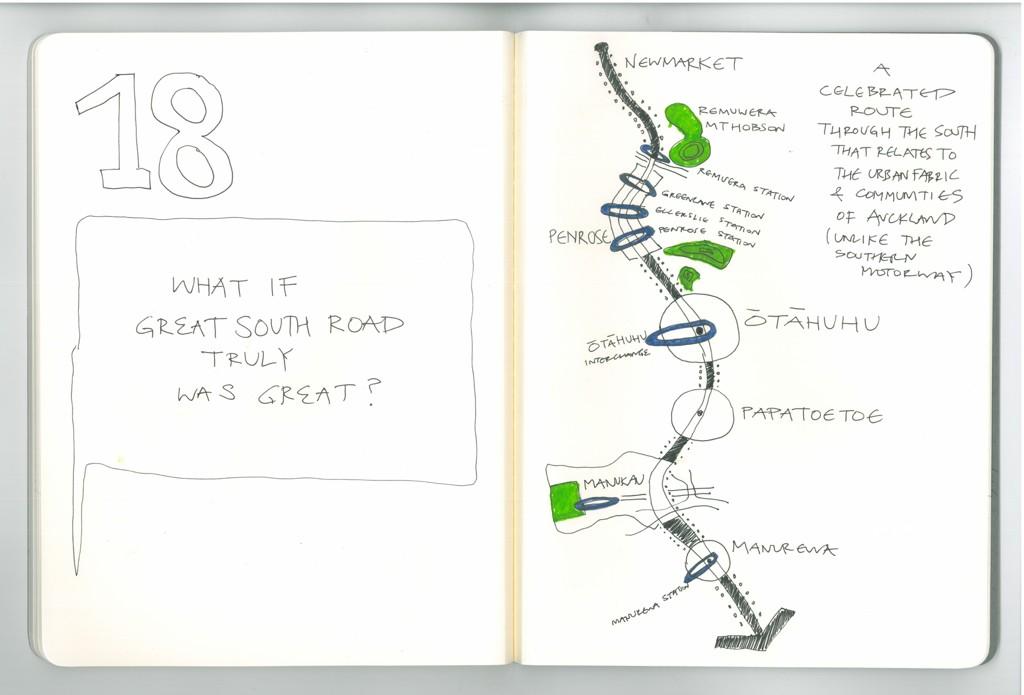 18
WHAT IF
GREAT SOUTH ROAD
TRULY
WAS GREAT?
NEWMARKET
REMUWERA
MT HOBSON
REMUERA STATION
GREENLANE STATION
ELLERSLIE STATION
PENROSE STATION
PENROSE
ŌTĀHUHU
ŌTĀHUHU
INTERCHANGE
PAPATOETOE
MANUKAU
MANUREWA
MANUREWA STATION
A
CELEBRATED
ROUTE
THROUGH THE SOUTH
THAT RELATES TO
THE URBAN FABRIC
& COMMUNTIES
OF AUCKLAND
(UNLIKE THE
SOUTHERN
MOTORWAY)